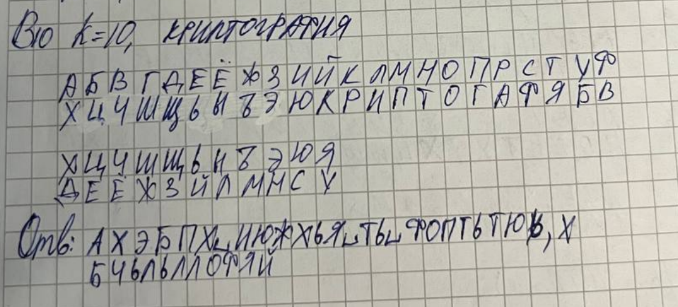 В10 k=10, КРИПТОГРАФИЯ
А Б В Г Д Е Ё Ж З И Й К Л М Н О П Р С Т У Ф
Х Ц Ч Ш Щ Ь Ы Ъ Э Ю К Р И П Т О Г А Ф Я Б В
Х Ц Ч Ш Щ Ь Ы Ъ Э Ю Я
Д Е Ё Ж З Й Л М Н С У
Отв: АХЭБПХ␣ИЮЖХЬЯ␣ТЫ␣ФОПТЬТЮЬ, Х
БЧЬЛЬЛЛОФЯЙ